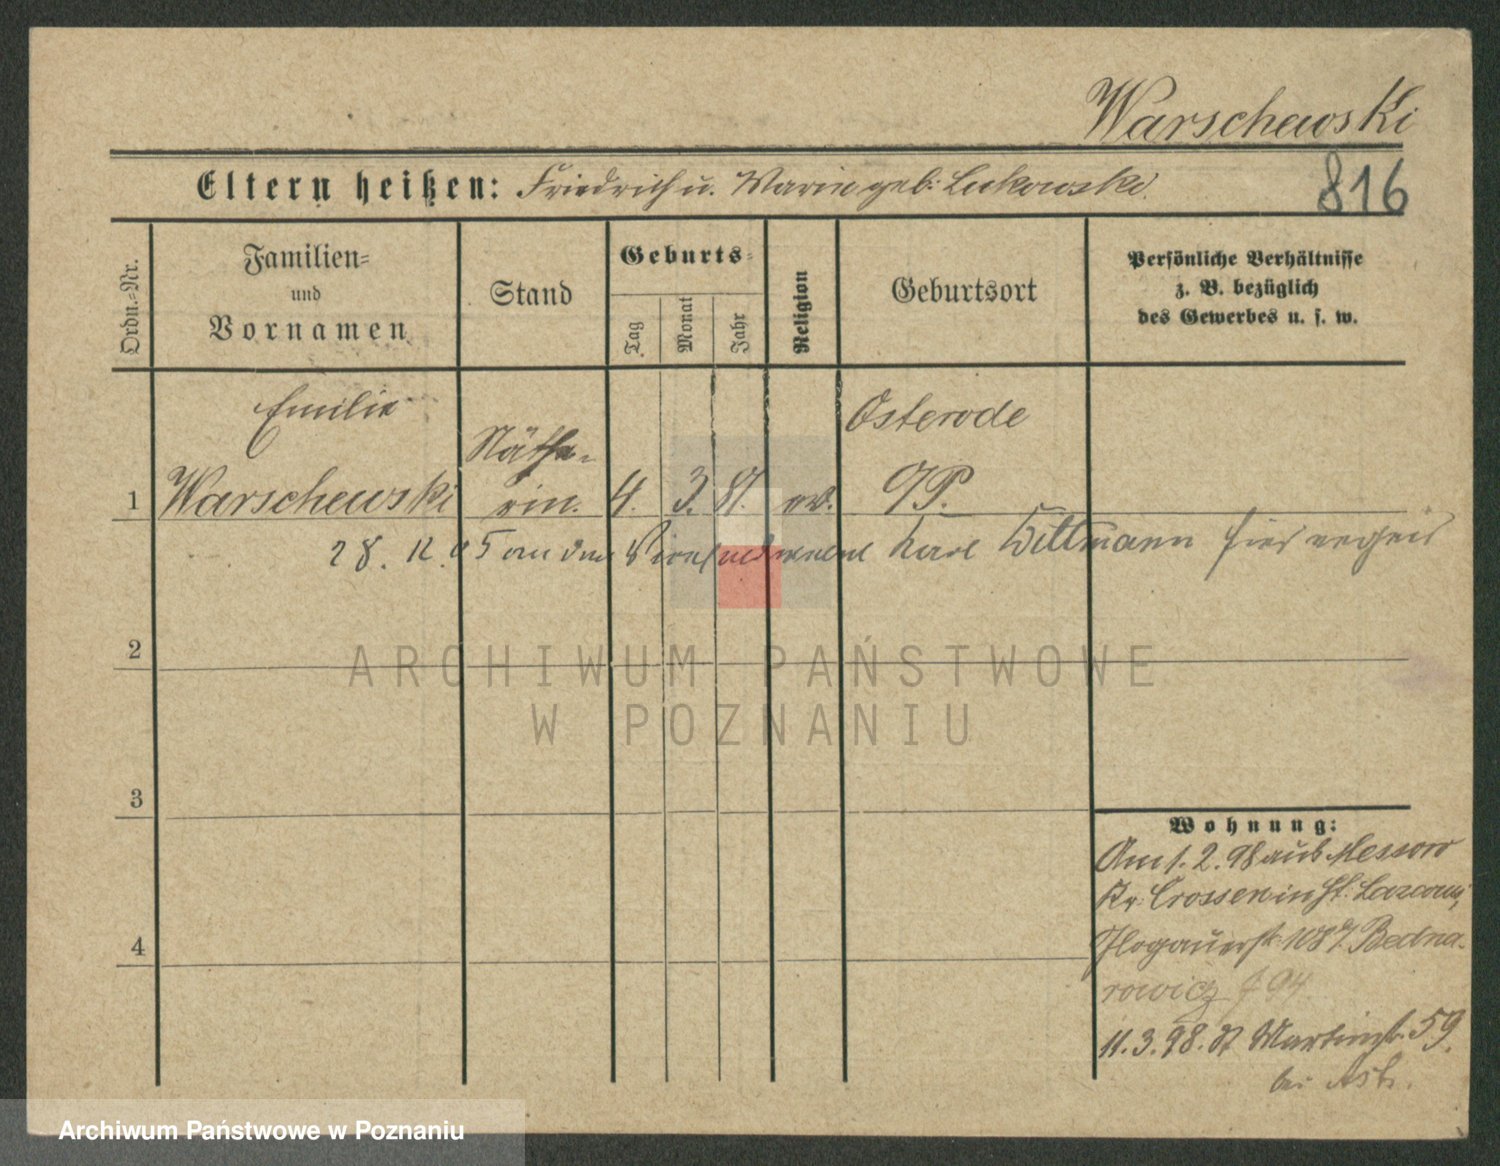 Warschewski
Eltern heißen: Friedrich u. Marie geb. Lukowski
816
Ordn.-Nr.
Familien-
und
Vornamen
Stand
Geburts-
Tag
Monat
Jahr
Religion
Geburtsort
Persönliche Verhältnisse
z. B. bezüglich
des Gewerbes u. s. w.
Emilie
Osterode
Näthe-
1 Warschewski rin. 4. 3. 81. ev. O/P.
28. 12. 05 an den Karl Wittmann hier
2
ARCHIWUM PAŃSTWOWE
W POZNANIU
3
Wohnung:
Am 1. 2. 98 aus Messow
Kr. Crossen in St. Lazarus,
Glogauerstr. 108 b. Bedna-
rowicz J 94
4
11.3.98. St Martinstr. 59.
bei
Archiwum Państwowe w Poznaniu